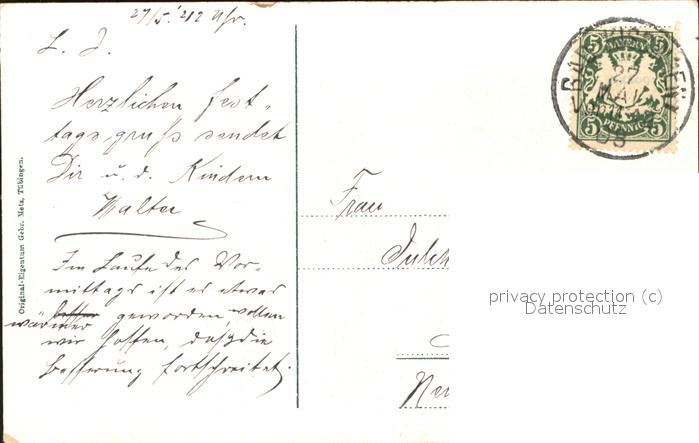 27/5. 212 Uhr.
L. J.
Herzlichen Fest-
tagsgruß sendet
Dir u. d. Kindern
Walter
Im Laufe des Vor-
mittags ist es etwas
wärmer geworden, wollen
wir hoffen, daß die
Besserung fortschreitet.
Original-Eigentum Gebr. Metz, Tübingen.
BAYERN
5 5
5 PFENNIG 5
27
MAI
08
Frau
privacy protection (c)
Datenschutz